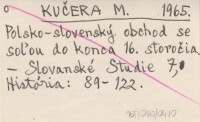 KUČERA M. 1965.
Polsko-slovenský obchod se
soľou do konca 16. storočia
– Slovanské Studie 7,
História: 89-122.